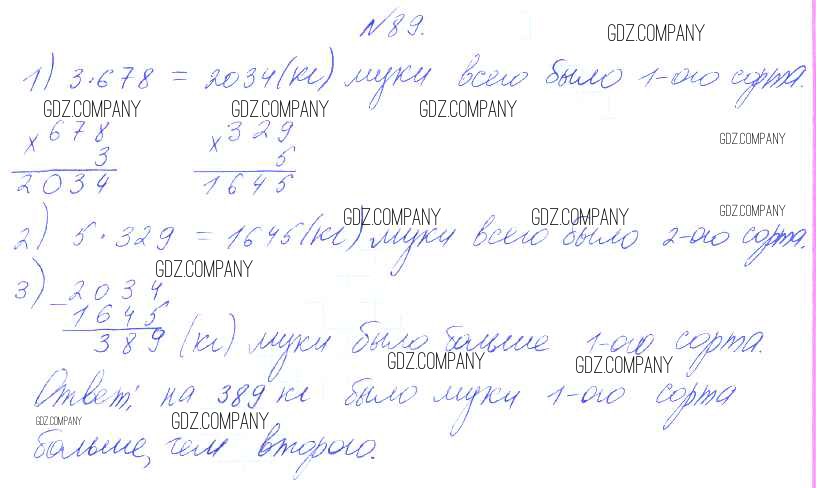 №89.
GDZ.COMPANY
1) 3·678 = 2034(кг) муки всего было 1-ого сорта.
GDZ.COMPANY GDZ.COMPANY GDZ.COMPANY
GDZ.COMPANY
×678 ×329
3 5
2034 1645
GDZ.COMPANY GDZ.COMPANY GDZ.COMPANY
2) 5·329 = 1645(кг) муки всего было 2-ого сорта.
GDZ.COMPANY
3) −2034
1645
389 (кг) муки было больше 1-ого сорта.
GDZ.COMPANY GDZ.COMPANY
Ответ: на 389 кг было муки 1-ого сорта
GDZ.COMPANY GDZ.COMPANY
больше, чем второго.